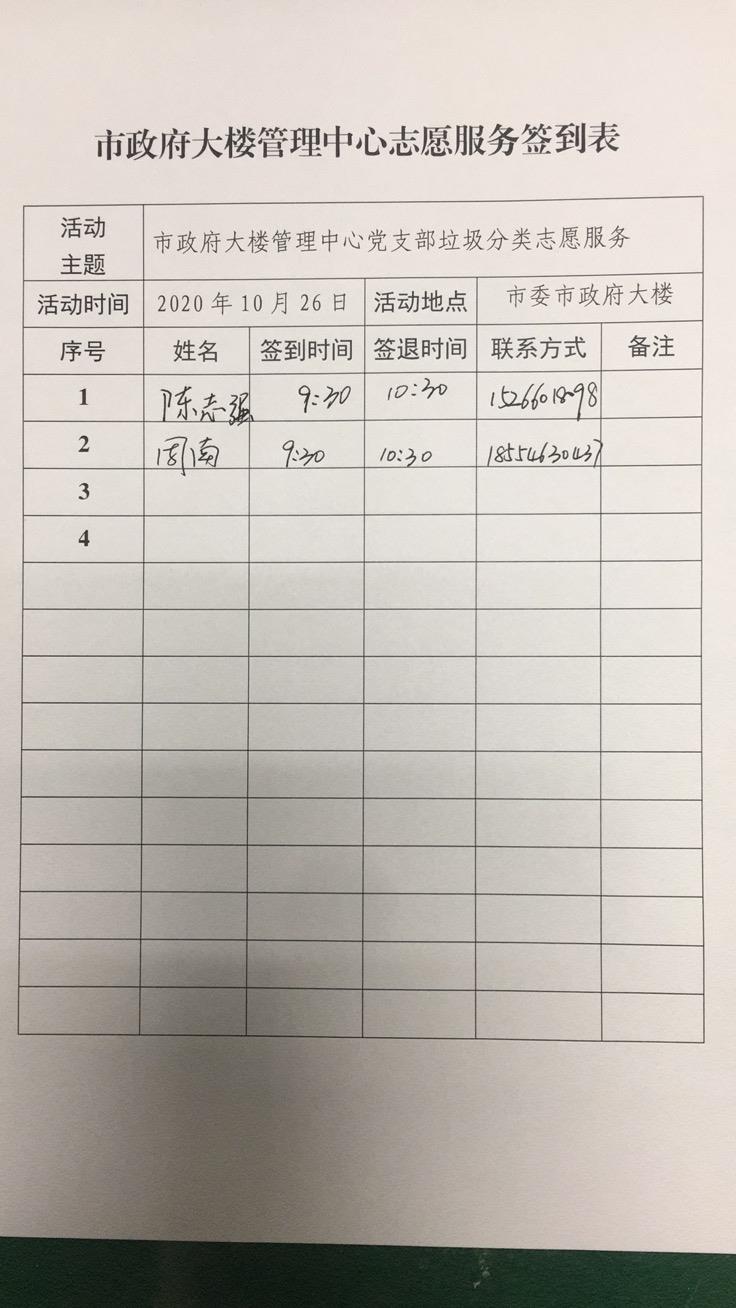 市政府大楼管理中心志愿服务签到表
活动主题 市政府大楼管理中心党支部垃圾分类志愿服务
活动时间 2020 年 10 月 26 日 活动地点 市委市政府大楼
序号 姓名 签到时间 签退时间 联系方式 备注
1 陈志强 9:30 10:30
2 周南 9:30 10:30 18554630437
3
4